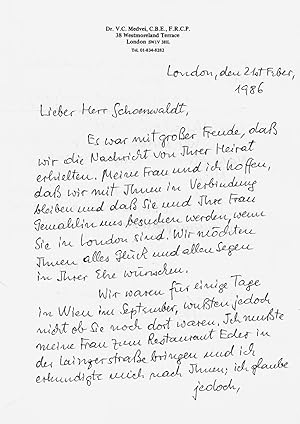 Dr. V.C. Medvei, C.B.E., F.R.C.P.
38 Westmoreland Terrace
London SW1V 3HL
Tel: 01-834-8282
London, den 21st Feber,
1986
Lieber Herr Schoenwaldt,
Es war mit großer Freude, daß
wir die Nachricht von Ihrer Heirat
erhielten. Meine Frau und ich hoffen,
daß wir mit Ihnen in Verbindung
bleiben und daß Sie und Ihre Frau
Gemahlin uns besuchen werden, wenn
Sie in London sind. Wir möchten
Ihnen alles Glück und allen Segen
in Ihrer Ehe wünschen.
Wir waren für einige Tage
in Wien im September, wußten jedoch
nicht ob Sie noch dort waren. Ich mußte
meine Frau zum Restaurant Eder in
der Lainzerstraße bringen und ich
erkundigte mich nach Ihnen; ich glaube
jedoch,